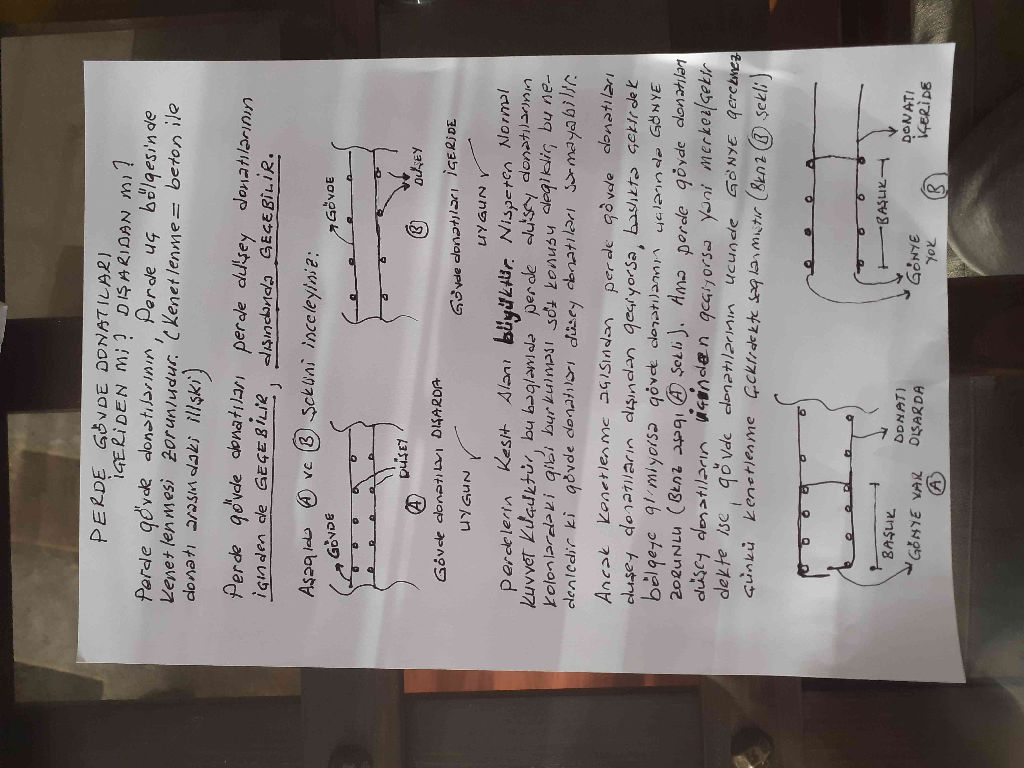 PERDE GÖVDE DONATILARI
İÇERİDEN Mİ? DIŞARIDAN MI?
Perde gövde donatılarının, Perde uç bölgesinde
kenetlenmesi zorunludur. (Kenetlenme = beton ile
donatı arasındaki ilişki)
Perde gövde donatıları perde düşey donatılarının
içinden de GEÇEBİLİR, dışından da GEÇEBİLİR.
Aşağıda (A) ve (B) şeklini inceleyiniz:
GÖVDE
DÜŞEY
(A)
Gövde donatıları DIŞARDA
UYGUN
GÖVDE
DÜŞEY
(B)
Gövde donatıları İÇERİDE
UYGUN
Perdelerin Kesit Alanı büyüktür. Nispeten Normal
kuvvet küçüktür, bu bağlamda perde düşey donatılarının
kolonlardaki gibi burkulması söz konusu değildir, bu ne-
denledir ki gövde donatıları düşey donatıları sarmayabilir.
Ancak kenetlenme açısından perde gövde donatıları
düşey donatıların dışından geçiyorsa, başlıkta çekirdek
bölgeye girmiyorsa gövde donatılarının uçlarında GÖNYE
ZORUNLU (Bknz aşağı (A) şekli). Ama perde gövde donatıları
düşey donatıların içinden geçiyorsa yani merkez/çekir
dekte ise, gövde donatılarının ucunda GÖNYE gerekmez
çünkü kenetlenme çekirdekte sağlanmıştır (Bknz (B) şekli)
BAŞLIK
GÖNYE VAR
(A)
DONATI
DIŞARDA
BAŞLIK
GÖNYE
YOK
(B)
DONATI
İÇERİDE